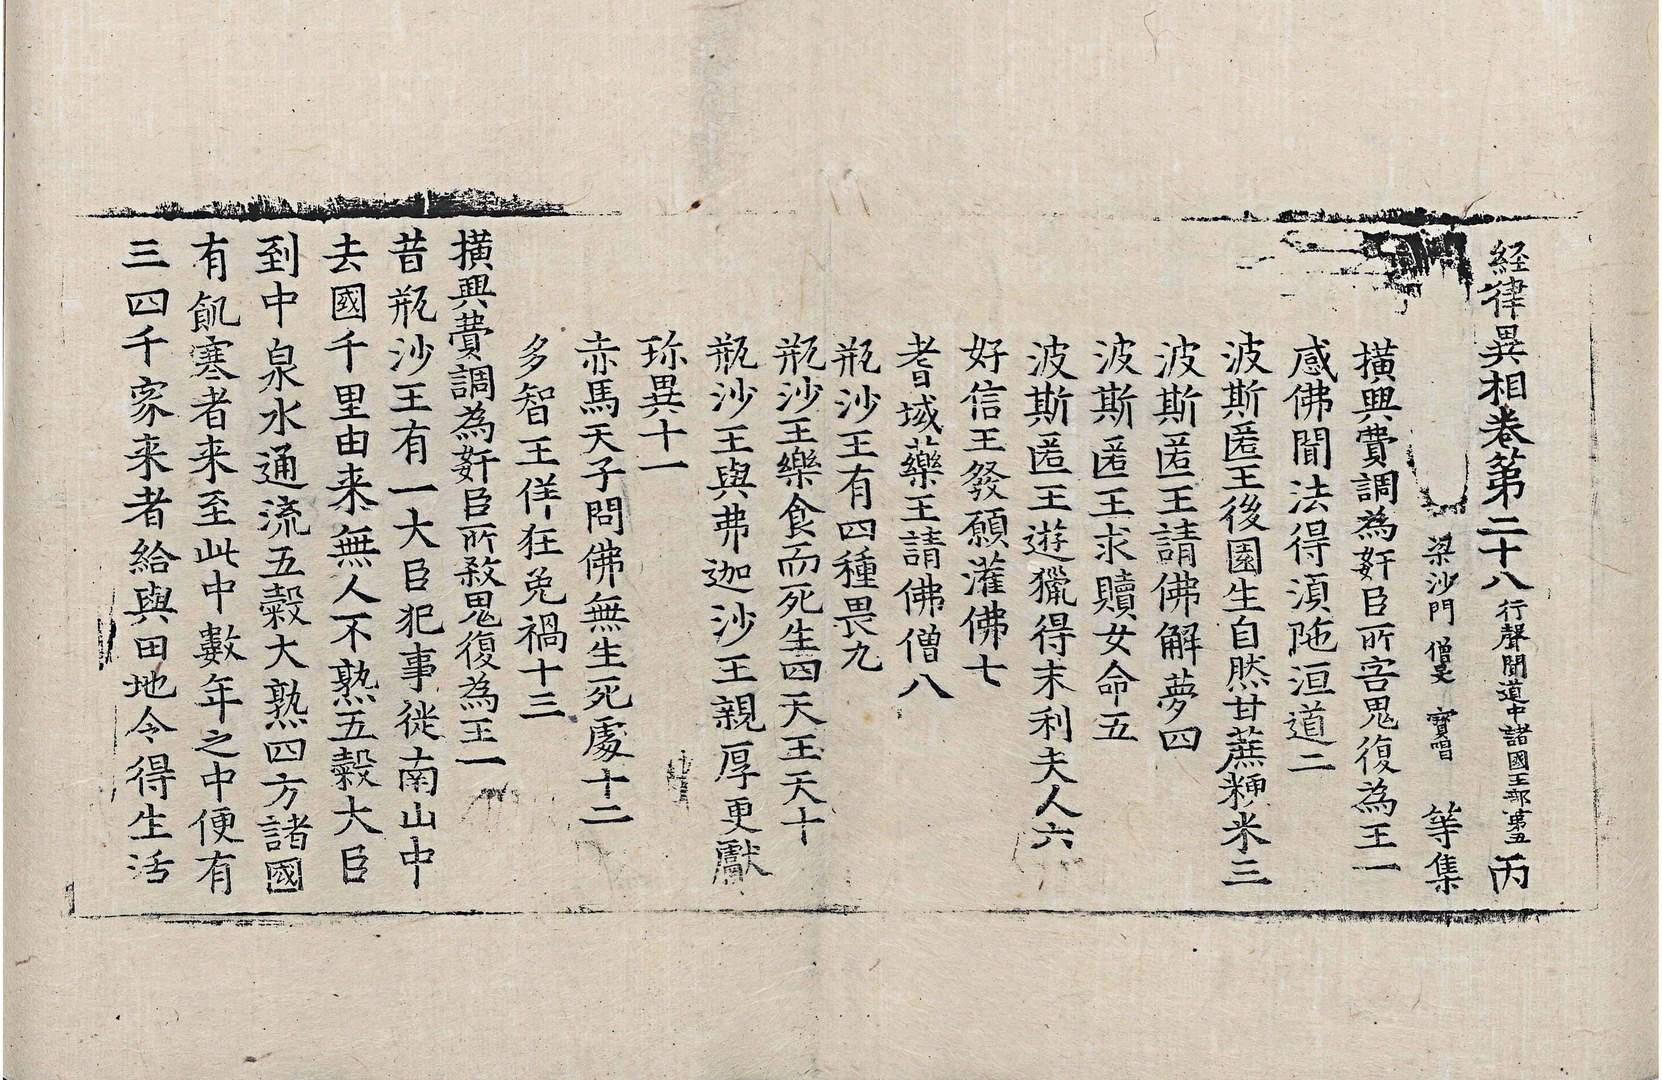 経律異相卷第二十八 行聲聞道中諸國王部第五 丙
梁沙門 僧旻 寶唱 等集
橫興費調為姧臣所害鬼復為王一
感佛聞法得湏陁洹道二
波斯匿王後園生自然甘蔗粳米三
波斯匿王請佛解夢四
波斯匿王求贖女命五
波斯匿王遊獵得末利夫人六
好信王發願灌佛七
耆域藥王請佛僧八
瓶沙王有四種畏九
瓶沙王樂食而死生四天王天十
瓶沙王與弗迦沙王親厚更獻
珎異十一
赤馬天子問佛無生死處十二
多智王佯狂免禍十三
橫興費調為姧臣所殺鬼復為王一
昔瓶沙王有一大臣犯事徙南山中
去國千里由来無人不熟五糓大臣
到中泉水通流五糓大熟四方諸國
有飢寒者来至此中數年之中便有
三四千家来者給與田地令得生活